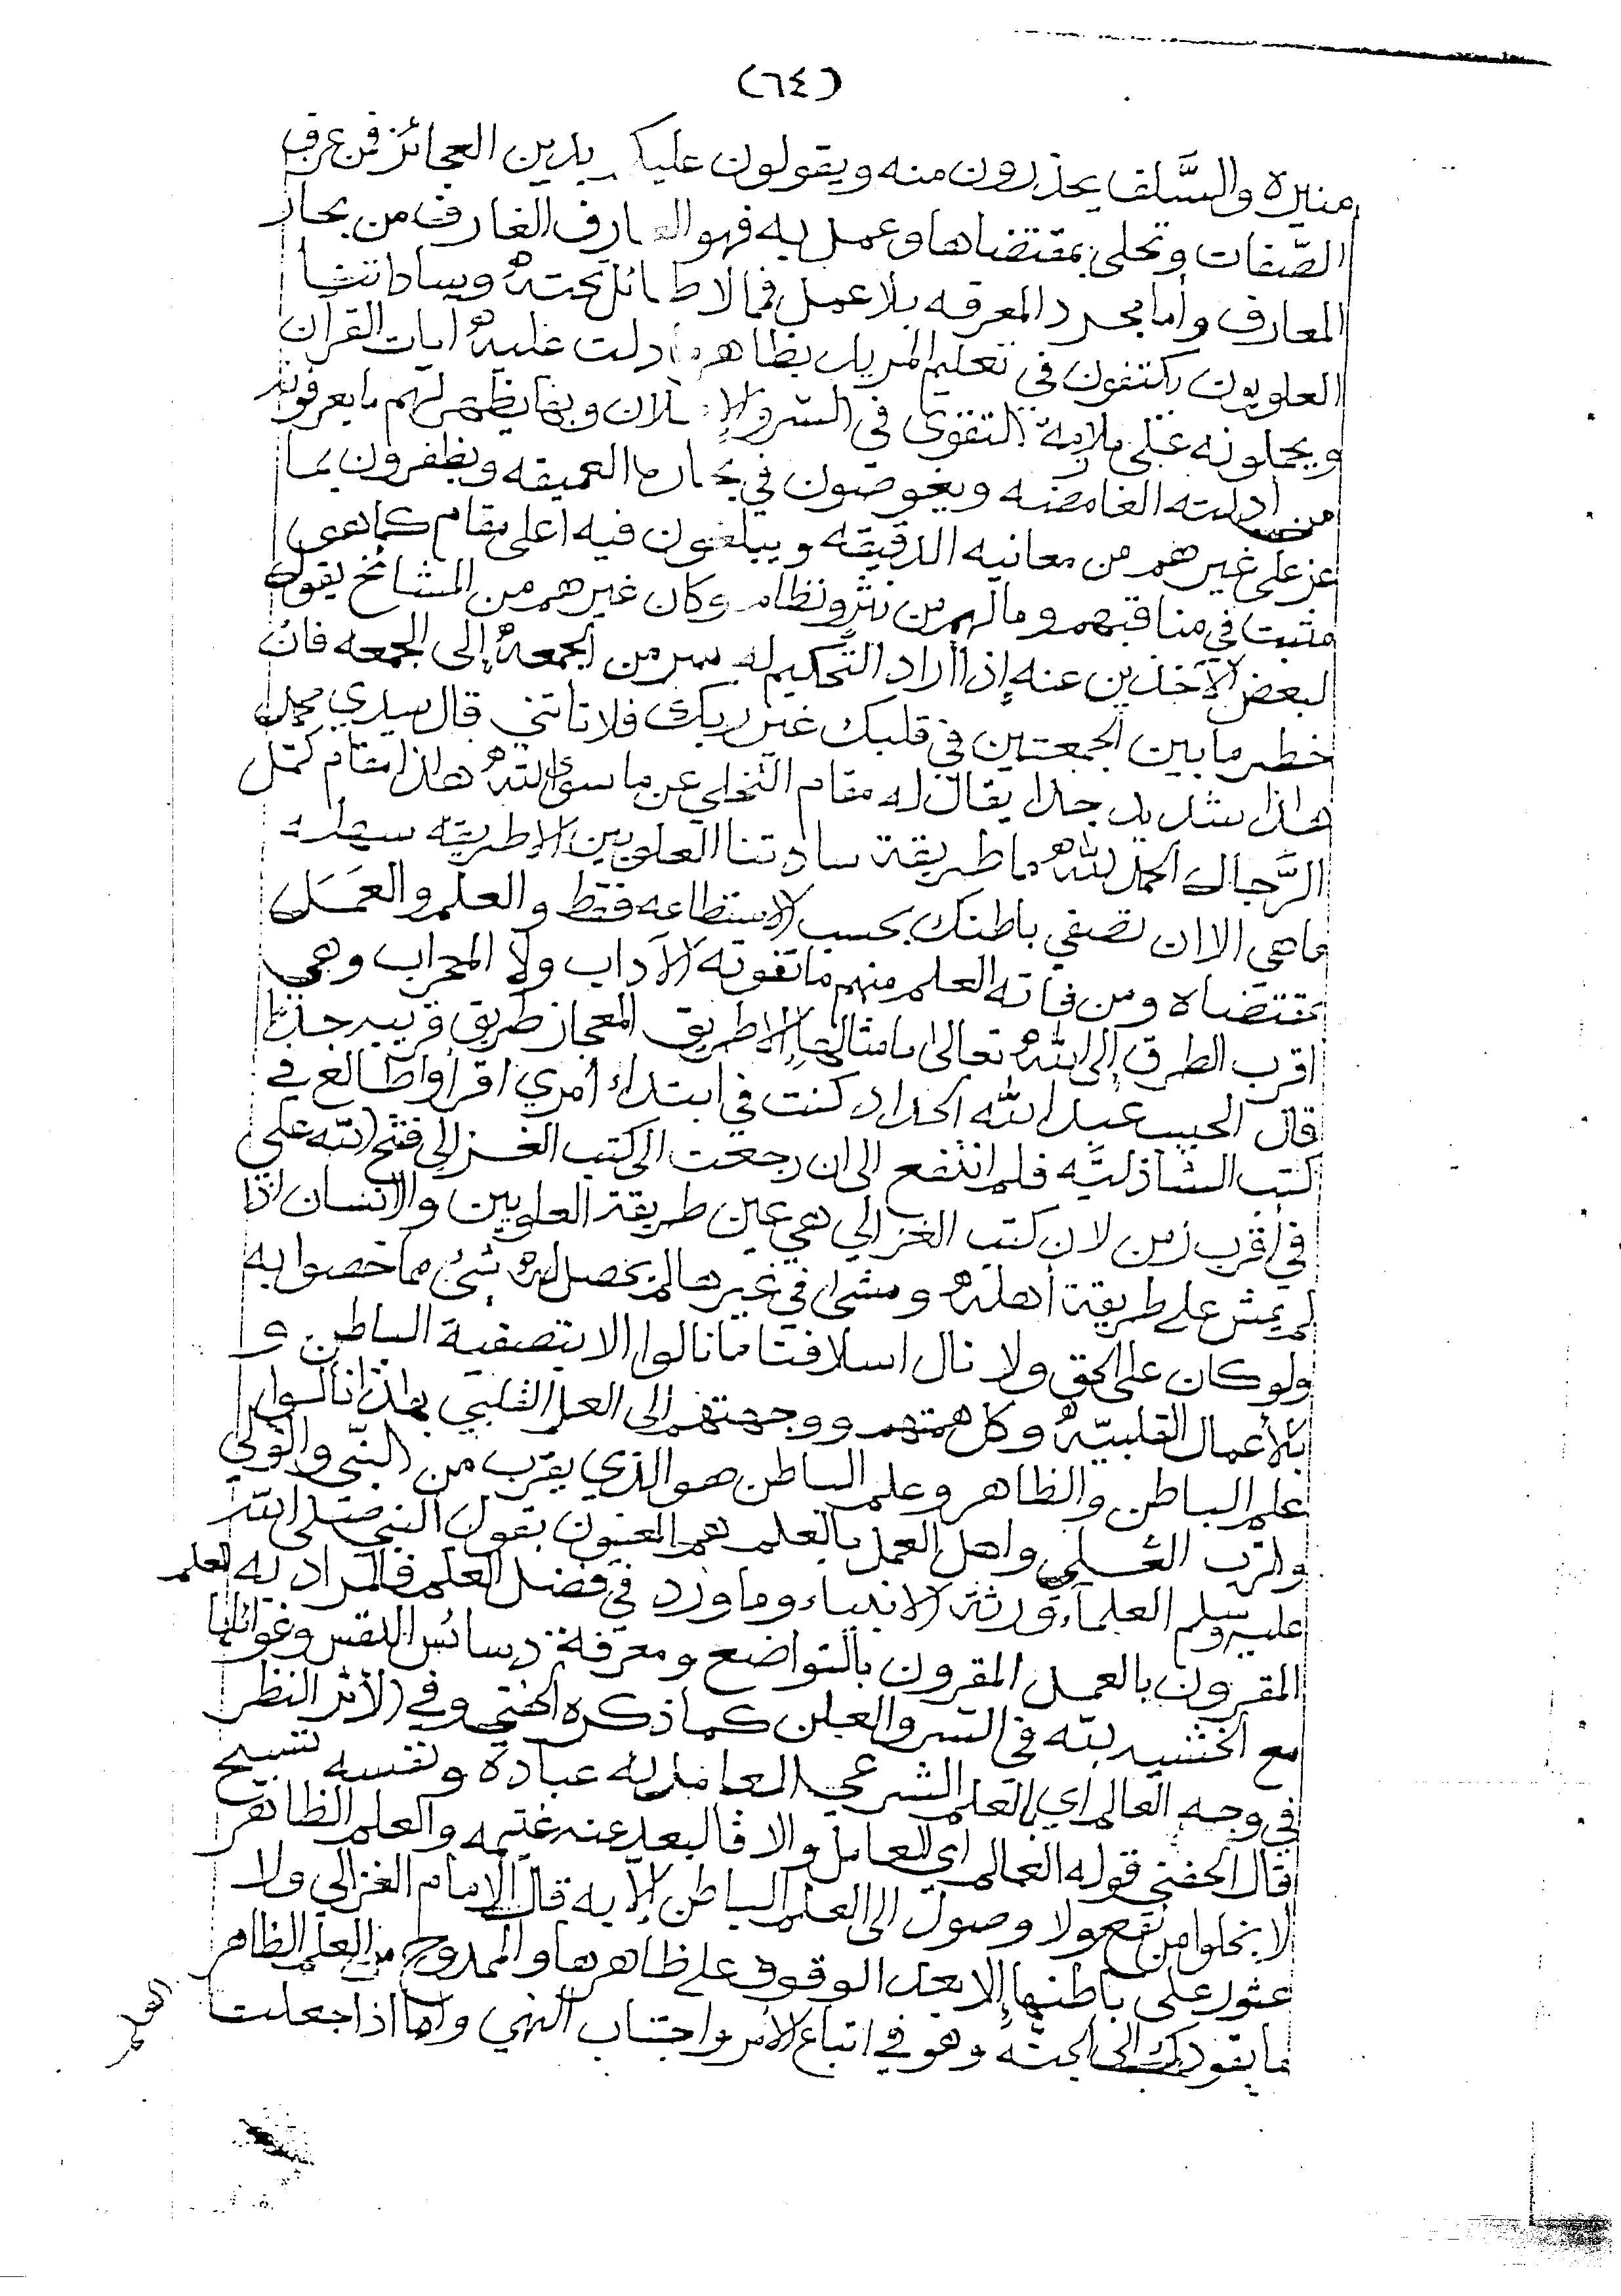 (٦٤)
منيره والسَّلف يحذرون منه ويقولون عليك بدين العجائز فمن عرف
الصّفات وتحلى بمقتضاها وعمل به فهو العارف الغارف من بحار
المعارف وأما مجرد المعرفه بلا عمل فما لا طائل تحته وساداتنا
العلويون يكتفون في تعليم المريد بظاهر ما دلت عليه آيات القرآن
ويحملونه على ملازمة التقوى في السر والإعلان وبها يظهر لهم ما يعرفونه
من أدلته الغامضه ويغوصون في بحاره العميقه ويظفرون بما
عز على غيرهم من معانيه الدقيقه ويبلغون فيه اعلى مقام كما هو
مثبت في مناقبهم وما لهم من نثر ونظام وكان غيرهم من المشائخ يقول
لبعض الآخذين عنه إذا أراد التَّحكيم له سر من الجمعة إلى الجمعه فان
خطر ما بين الجمعتين في قلبك غير ربك فلا تأتني قال سيدي محمد
هاذا شديد جدا يقال له مقام التخلي عن ما سوى الله هاذا مقام كمّل
الرَّجال الحمد لله ما طريقة سادتنا العلويين الا طريقه سهله
ما هي الا ان تصفي باطنك بحسب الاستطاعه فقط والعلم والعَمَل
بمقتضاه ومن فاته العلم منهم ما تفوته الآداب ولا المحراب وهي
اقرب الطرق إلى الله تعالى ما مثالها إلا طريق المعجاز طريق قريبه جدًا
قال الحبيب عبد الله الحداد كنت في ابتداء أمري اقرأ واطالع في
كتب الشاذليَّه فلم انتفع الى ان رجعت الى كتب الغزالي ففتح الله علي
في أقرب زمن لان كتب الغزالي هي عين طريقة العلويين والانسان اذا
لم يمش على طريقة أهله ومشى في غيرها لم يحصل له شئ مما خصوا به
ولو كان على الحق ولا نال اسلافنا ما نالوا الا بتصفية الباطن و
بالأعمال القلبيّه وكل همتهم ووجهتهم الى العمل القلبي بهاذا نالوا
علم الباطن والظاهر وعلم الباطن هو الذي يقرب من النبّي والولي
والرب العلي واهل العمل بالعلم هم المعنيون بقول النبي صلى الله
عليه وسلم العلماء ورثة الانبياء وما ورد في فضل العلم فالمراد به العلم
المقرون بالعمل المقرون بالتواضع ومعرفة دسائس النفس وغوائلها
مع الخشيه لله في السر والعلن كما ذكره الحفني وفي الأثر النظر
في وجه العالم اي بالعلم الشرعي العامل به عبادة ونفسه تسبيح
قال الحفني قوله العالم اي العامل والا فالبعد عنه غنيمه والعلم الظاهر
لا يخلوا من نفع ولا وصول الى العلم الباطن إلا به قال الامام الغزالي ولا
عثور على باطنها إلا بعد الوقوف على ظاهرها والممدوح من العلم الظاهر
ما يقودك الى الجنّه وهو في اتباع الأمر واجتناب النهي واما اذا جعلت
العلم